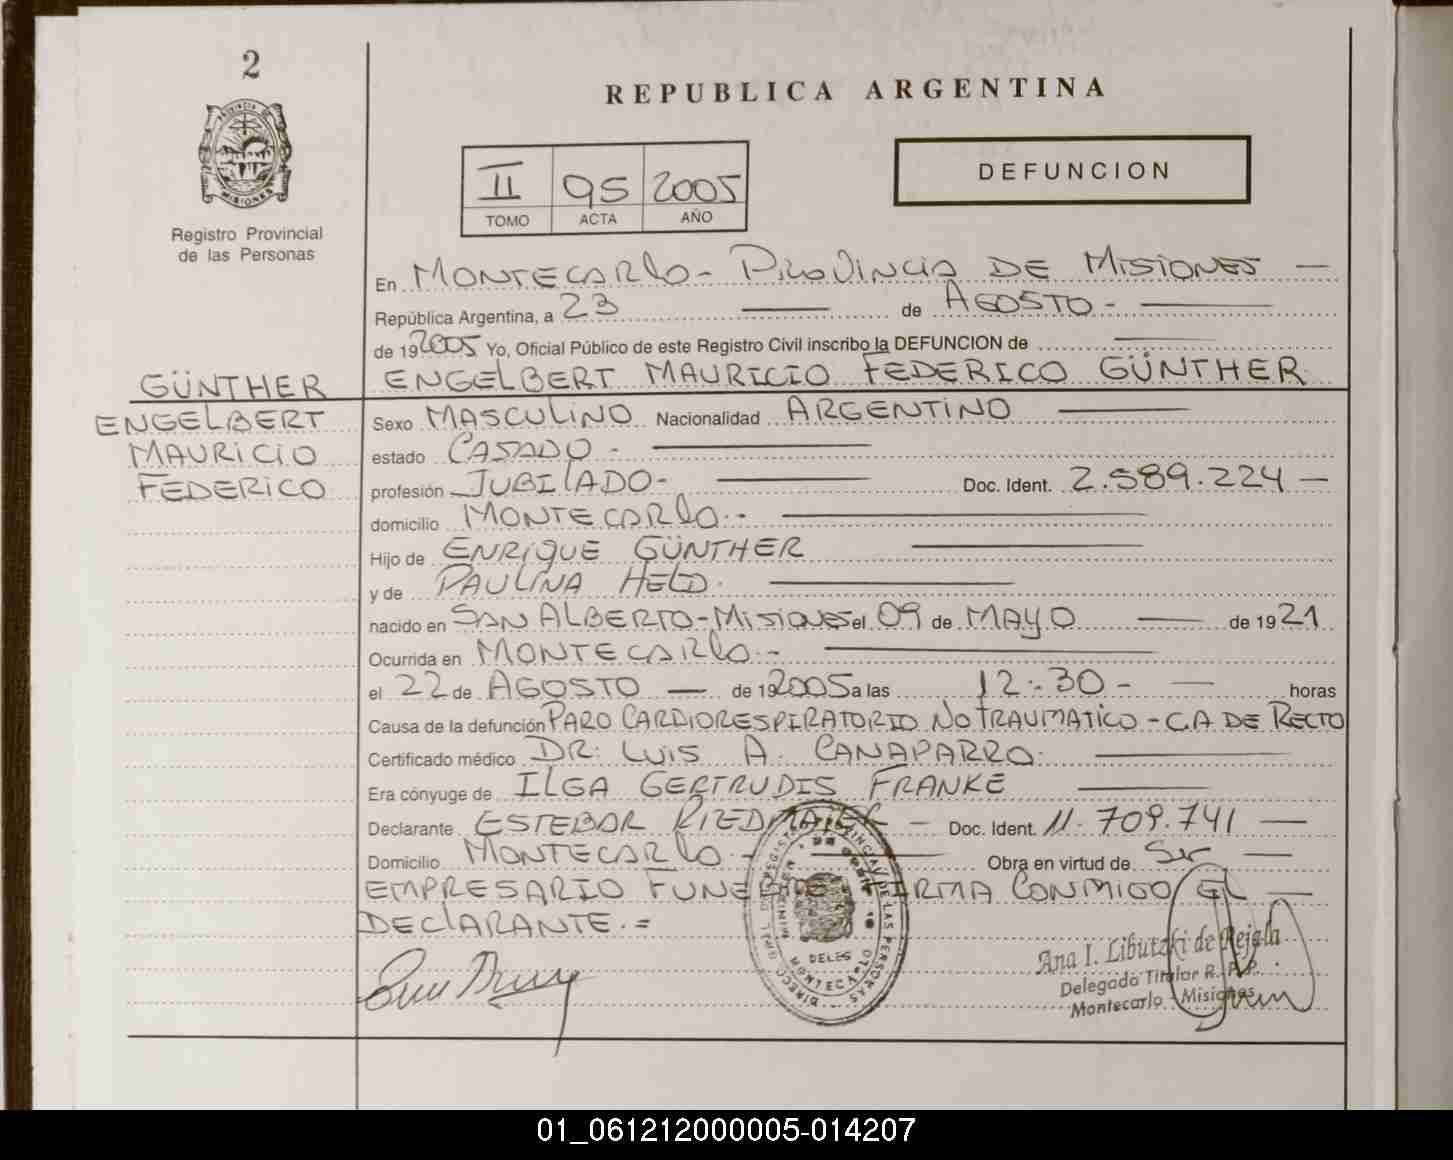 2
REPUBLICA ARGENTINA
PROVINCIA DE
MISIONES
Registro Provincial
de las Personas
II 95 2005
TOMO ACTA AÑO
DEFUNCION
En MONTECARLO - PROVINCIA DE MISIONES —
República Argentina, a 23 — de AGOSTO - —
de 19 2005 Yo, Oficial Público de este Registro Civil inscribo la DEFUNCION de —
ENGELBERT MAURICIO FEDERICO GÜNTHER
GÜNTHER
ENGELBERT
MAURICIO
FEDERICO
Sexo MASCULINO Nacionalidad ARGENTINO —
estado CASADO - —
profesión JUBILADO - — Doc. Ident. 2.589.224 —
domicilio MONTECARLO - —
Hijo de ENRIQUE GÜNTHER —
y de PAULINA HELD. —
nacido en SAN ALBERTO - MISIONES el 09 de MAYO — de 1921
Ocurrida en MONTECARLO - —
el 22 de AGOSTO — de 19 2005 a las 12:30 - — horas
Causa de la defunción PARO CARDIORESPIRATORIO NO TRAUMATICO - CA DE RECTO
Certificado médico DR: LUIS A. CANAPARRO. —
Era cónyuge de ILGA GERTRUDIS FRANKE —
Declarante ESTEBAR RIEDMAIER — Doc. Ident. 11.709.741 —
Domicilio MONTECARLO - — Obra en virtud de Ser —
EMPRESARIO FUNEBRE FIRMA CONMIGO EL —
DECLARANTE. =
DELEG
MONTECARLO
Ana I. Libutzki de Rejala
Delegada Titular R. P. P.
Montecarlo - Misiones
01_061212000005-014207